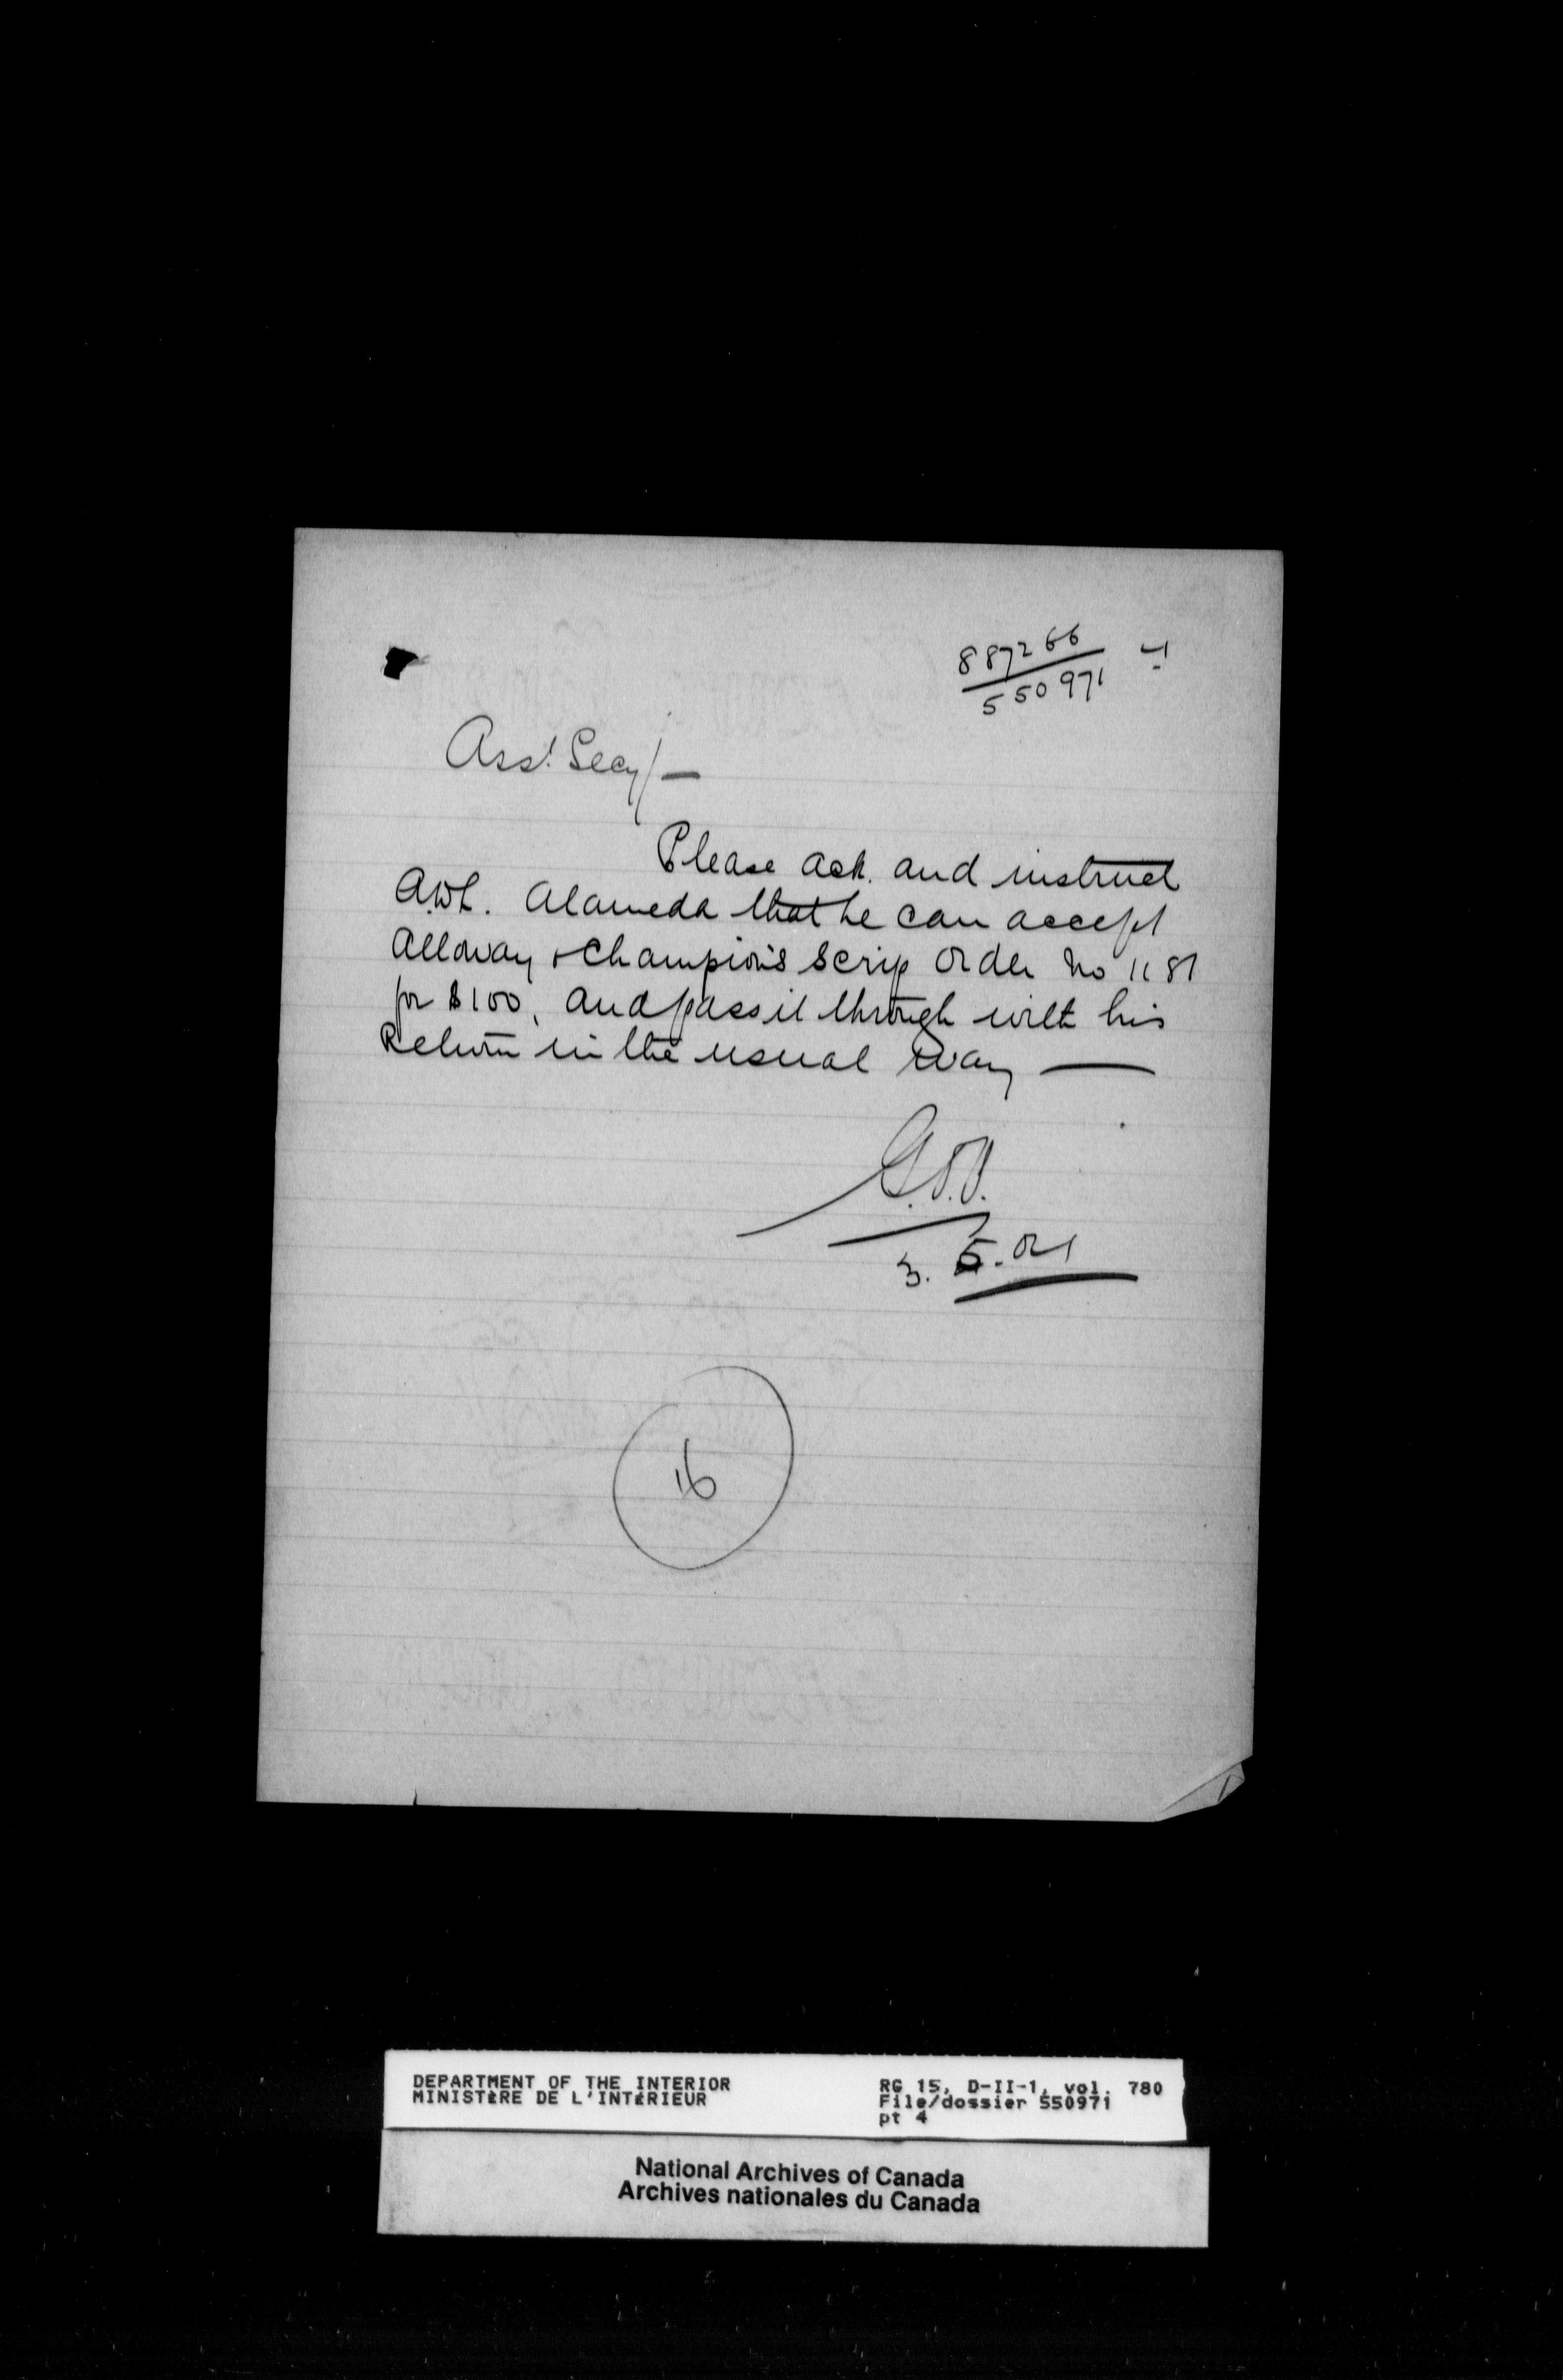 887266
550971
Asst. Secy/—
Please ack. and instruct
A.D.L. Alameda that he can accept
Alloway & Champion's Scrip Order No 1181
for $100, and pass it through with his
Return in the usual way —
3. 5. 01
16
DEPARTMENT OF THE INTERIOR
MINISTÈRE DE L'INTÉRIEUR
RG 15, D-II-1, vol. 780
File/dossier 550971
pt 4
National Archives of Canada
Archives nationales du Canada